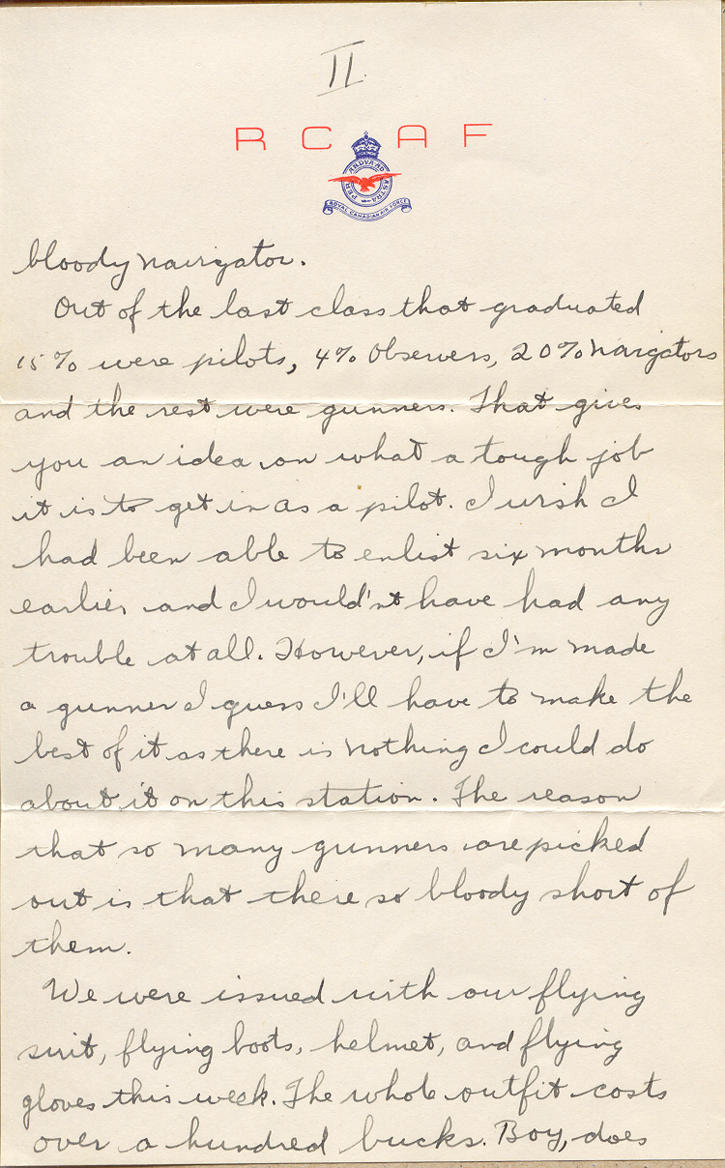 II.
R C A F
PER ARDVA AD ASTRA
ROYAL CANADIAN AIR FORCE
bloody navigator.
Out of the last class that graduated
15% were pilots, 4% Observers, 20% Navigators
and the rest were gunners. That gives
you an idea on what a tough job
it is to get in as a pilot. I wish I
had been able to enlist six months
earlier and I would'nt have had any
trouble at all. However, if I'm made
a gunner I guess I'll have to make the
best of it as there is nothing I could do
about it on this station. The reason
that so many gunners are picked
out is that there so bloody short of
them.
We were issued with our flying
suit, flying boots, helmet, and flying
gloves this week. The whole outfit costs
over a hundred bucks. Boy, does